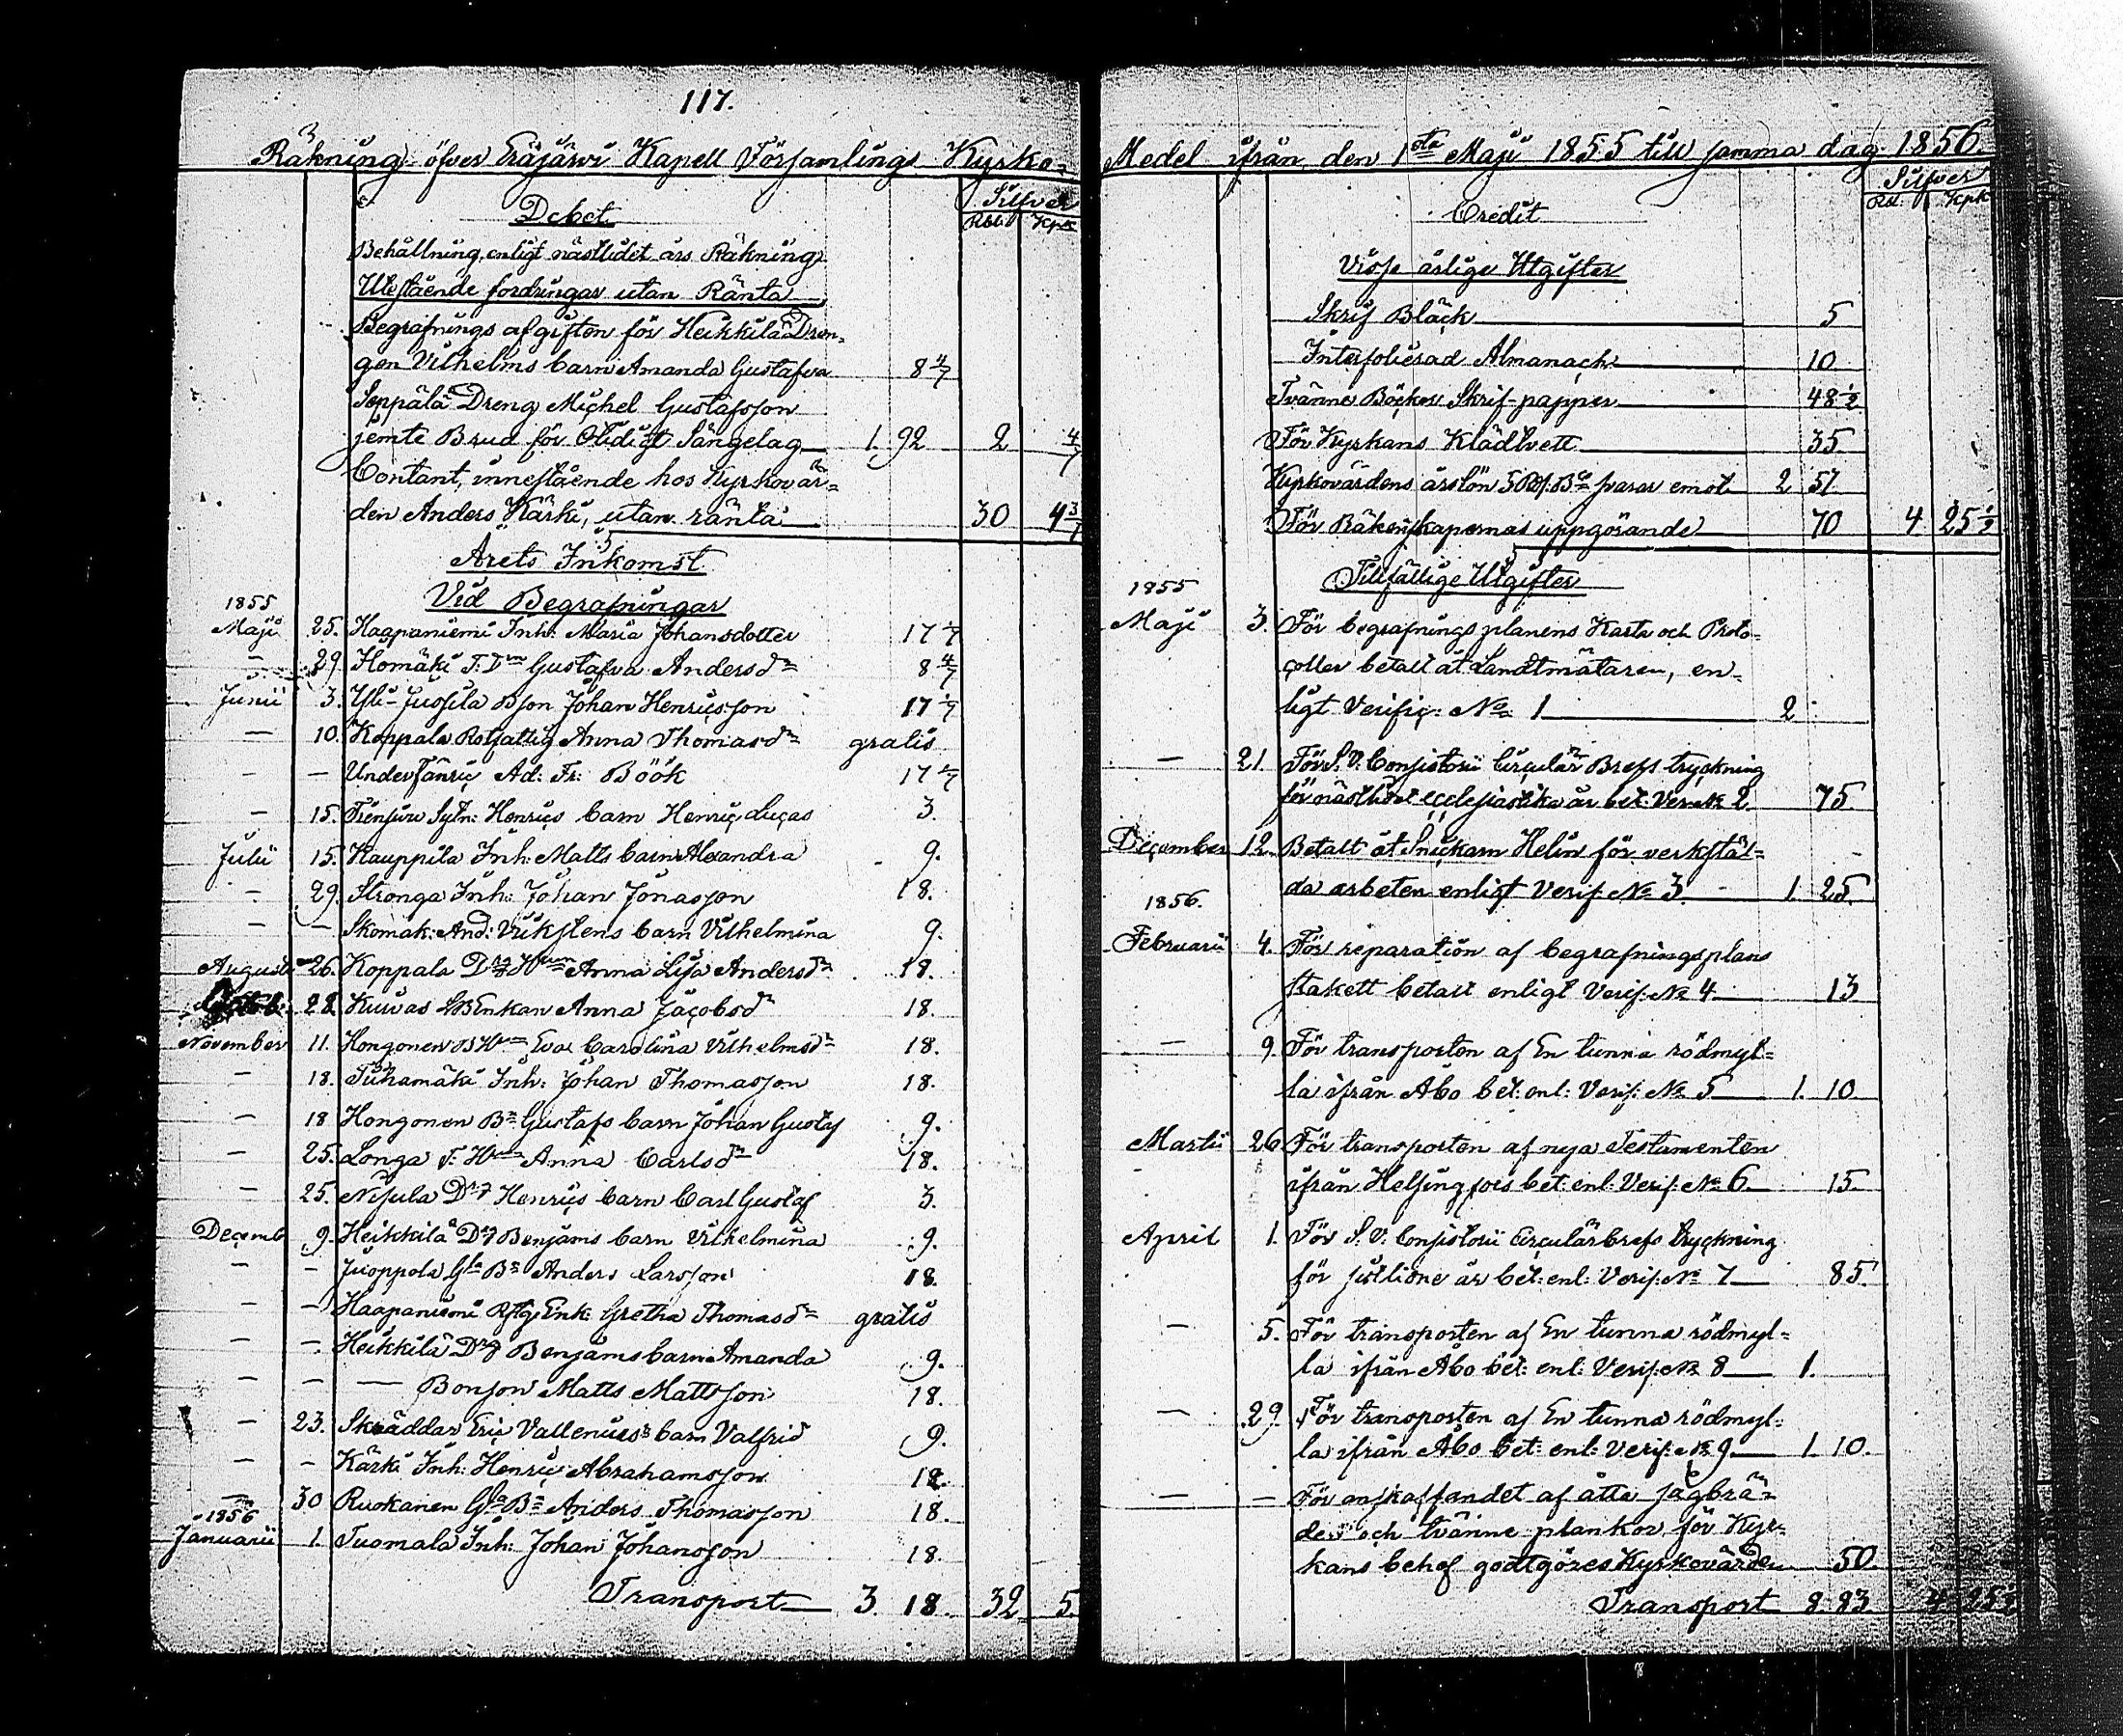 117.
Räkning öfver Eräjärvi Kapell Församlings Kyrko-
Silfver
Debet
Rbl Kpk
Behållning, enligt nästlidet års Räkning
Utestående fordringar utan Ränta
Begrafnings afgiften för Heikkilä Dren-
gen Vilhelms barn Amanda Gustafva 8 4/7
Seppälä Dreng Michel Gustafsson
jemte Brud för Otidigt Sängelag 1. 92 2 4/7
Contant, innestående hos Kyrkovär-
den Anders Kärki, utan ränta 30 4 3/7
Årets Inkomst
Vid Begrafningar
1855
Maji 25. Haapaniemi Inh: Maria Johansdotter 17 1/7
— 29. Homäki T. Dn Gustafva Andersdr 8 4/7
Junii 3. Yli-Juusila Bson Johan Henricsson 17 1/7
— 10. Koppala Rotfattig Anna Thomasdr gratis
— — Ad: Fr: Böök 17 1/7
— 15. Henrics barn Henric Lucas 3.
Julii 15. Kauppila Inh: Matts barn Alexandra 9.
— 29. Stronga Inh: Johan Jonasson 18.
— — Skomak: And: Vikstens barn Vilhelmina 9.
August 26. Koppala Anna Lisa Andersdr 18.
28. Kuivas Enkan Anna Jacobsdr 18.
November 11. Hongonen Eva Carolina Vilhelmsdr 18.
— 18. Tuhamäki Inh: Johan Thomasson 18.
— 18 Hongonen Bn Gustafs barn Johan Gustaf 9.
— 25. Longa T. Hn Anna Carlsdr 18.
— 25. Nisula Drg Henrics barn Carl Gustaf 3.
Decemb 9. Heikkilä Drg Benjams barn Vilhelmina 9.
— — Juoppola Gla Bn Anders Larsson 18.
— — Haapaniemi Rftg Enk: Gretha Thomasdr gratis
— — Heikkilä Drg Benjams barn Amanda 9.
— — — Bonson Matts Mattsson 18.
— 23. Skräddar Eric Vallenius's barn Valfrid 9.
— — Kärki Inh: Henric Abrahamsson 18.
— 30 Ruokanen Gla Bn Anders Thomasson 18.
1856
Januarii 1. Tuomala Inh: Johan Johansson 18.
Transport 3. 18. 32 5.
Medel ifrån den 1sta Maji 1855 till samma dag 1856.
Silfver
Credit
Rbl. Kpk
Visse årlige Utgifter
Skrif Bläck 5
Interfolierad Almanach 10
Tvänne Böcker Skrif-papper 48 1/2
För Kyrkans Klädtvett 35
Kyrkovärdens årslön 5 svarar emot 2 57
För Räkenskapernas uppgörande 70 4 25 1/2
Tillfällige Utgifter
1855
Maji 3. För begrafningsplanens Karta och Proto-
coller betalt åt Landtmätaren, en-
ligt Verific: No 1 2
— 21. För S. V. Consistorii Circulär Brefs tryckning
för nästlidet ecclesiastika år bet: Ver: No 2. 75.
December 12. Betalt åt Snickarn Helin för verkstäl-
da arbeten enligt Verif: No 3. 1. 25.
1856.
Februarii 4. För reparation af begrafningsplans
stakett betalt enligt Verif: No 4 13
— 9. För transporten af En tunna rödmyl-
la ifrån Åbo bet: enl: Verif: No 5 1. 10
Martii 26 För transporten af nya Testamenten
ifrån Helsingfors bet: enl: Verif: No 6. 15.
April 1. För S. V. Consistorii Circulär brefs tryckning
för sistlidne år bet: enl: Verif: No 7 85.
— 5. För transporten af En tunna rödmyl-
la ifrån Åbo bet: enl: Verif: No 8 1.
— 29. För transporten af En tunna rödmyl-
la ifrån Åbo bet: enl: Verif: No 9. 1. 10.
— — För anskaffandet af åtta sågbrä-
der och tvänne plankor för Kyr-
kans behof godtgöres Kyrkovärden 50.
Transport 8. 83. 4 25 1/2